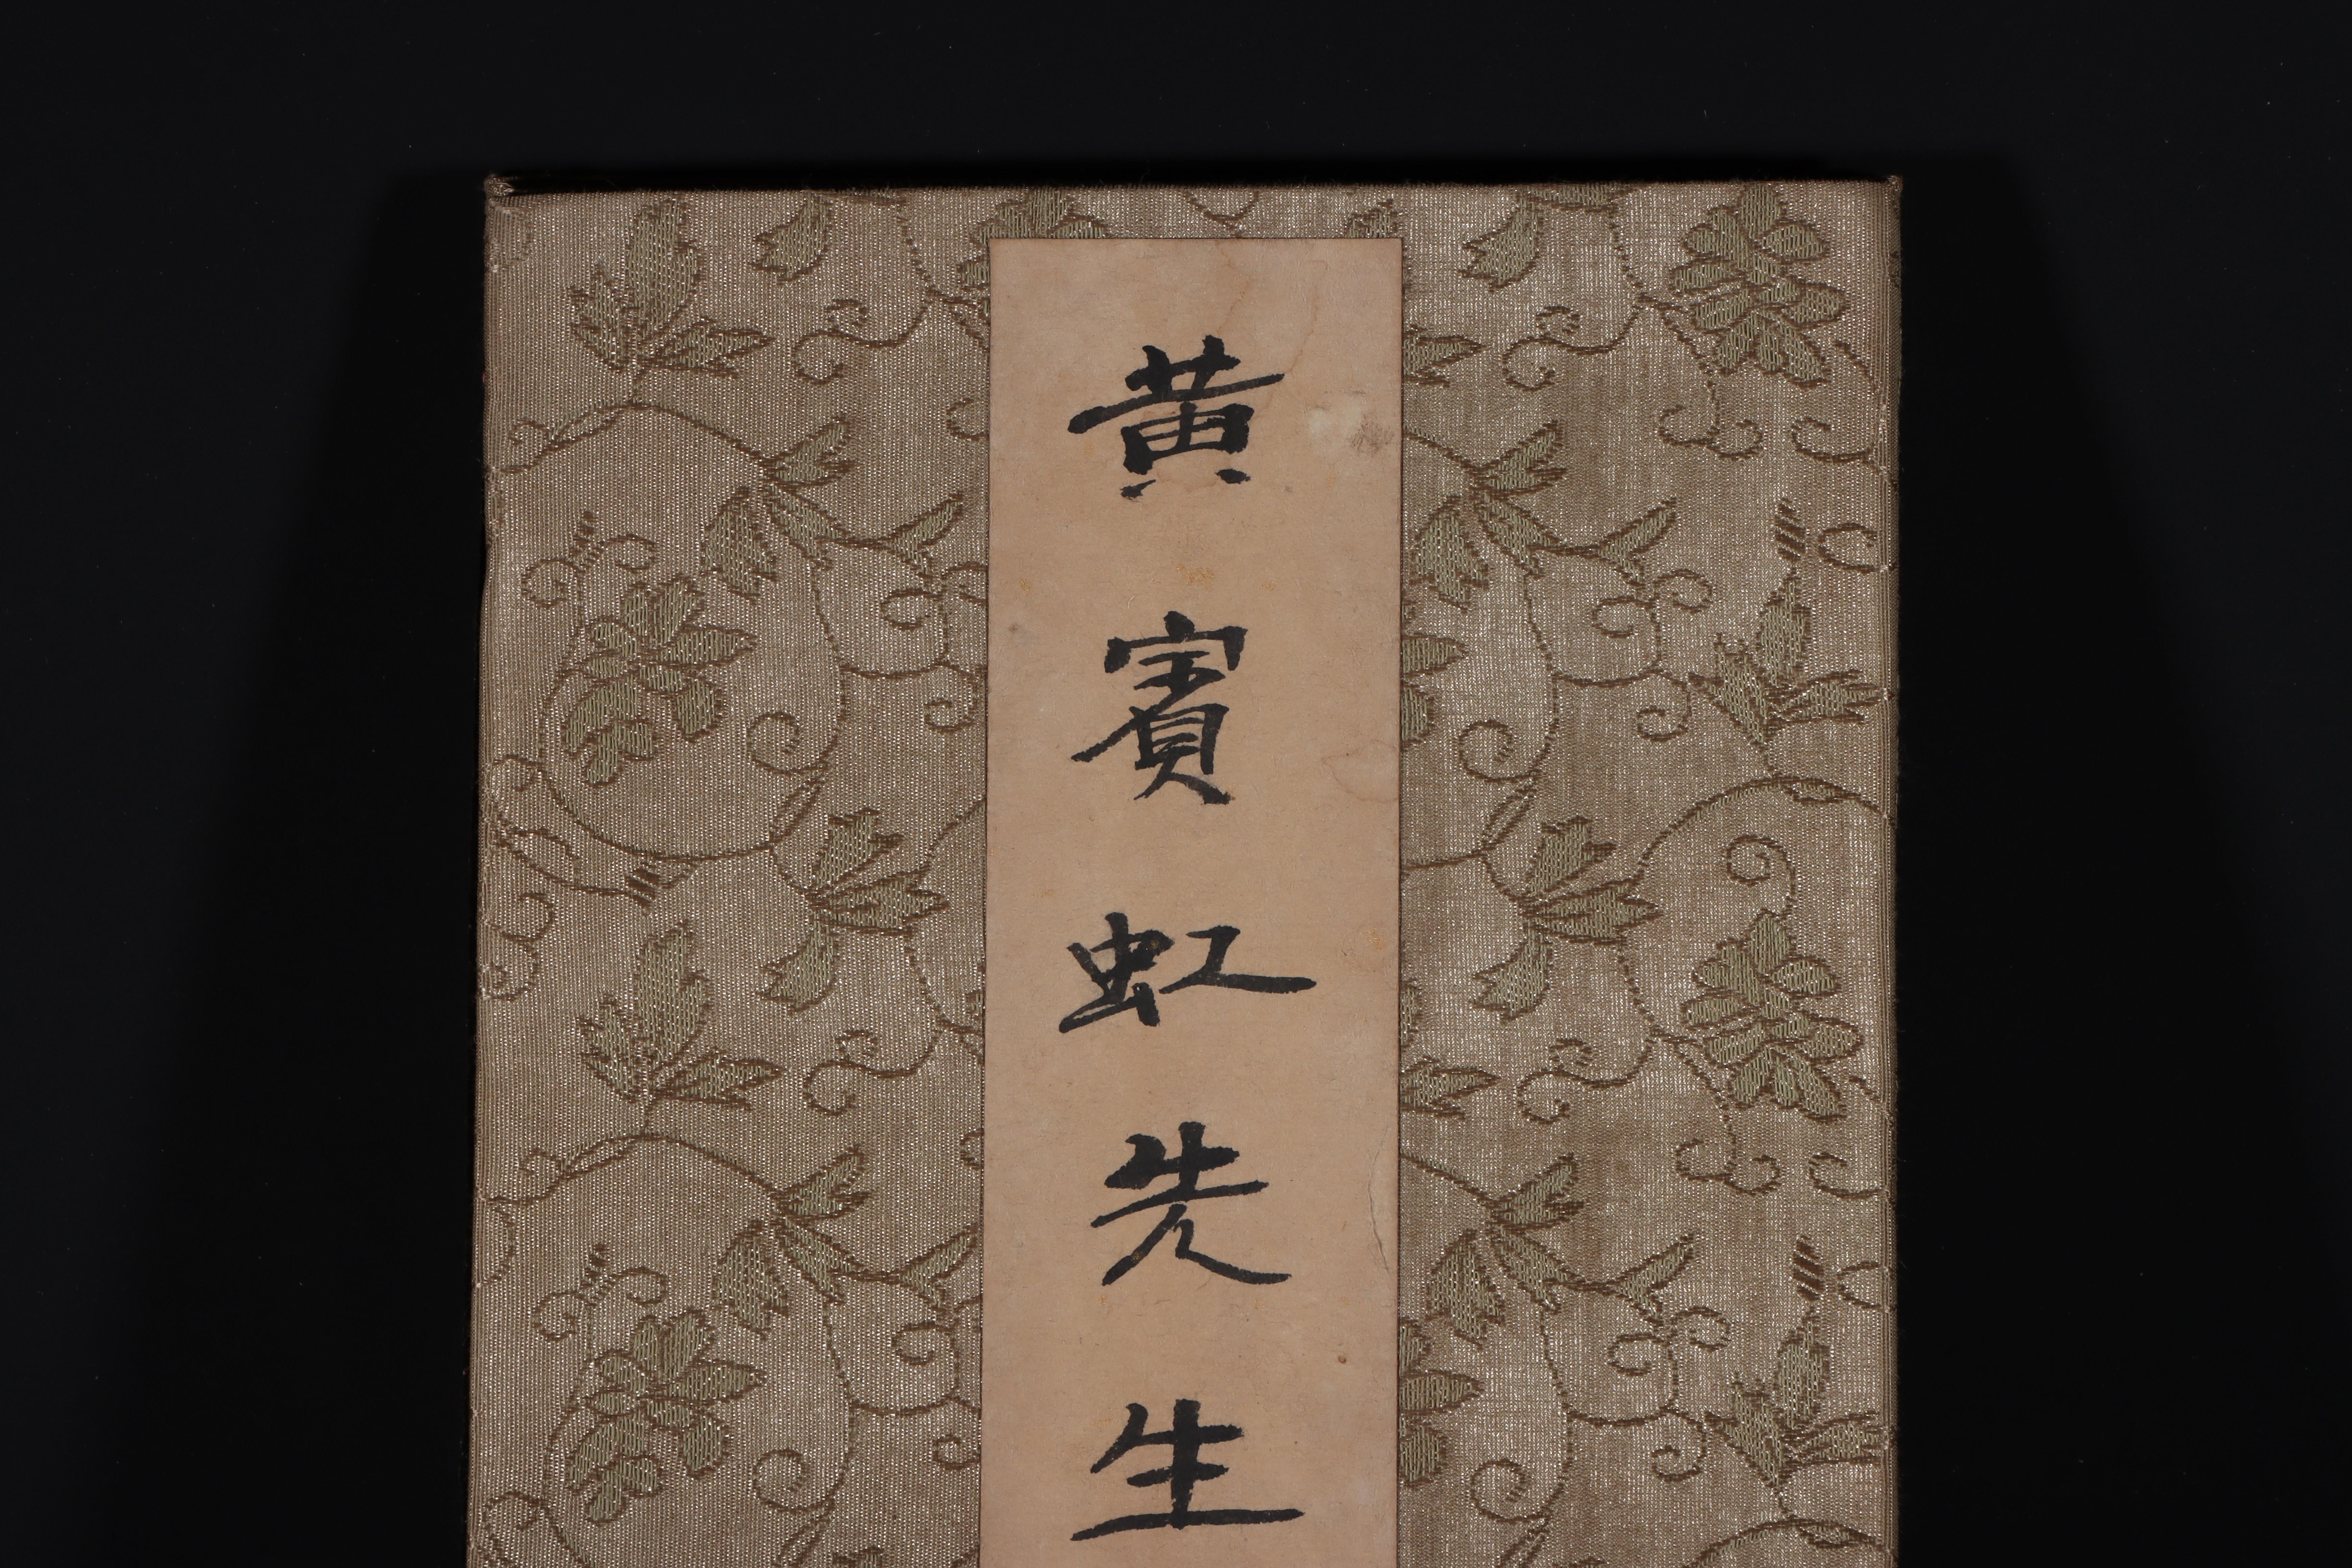 黃賓虹先生